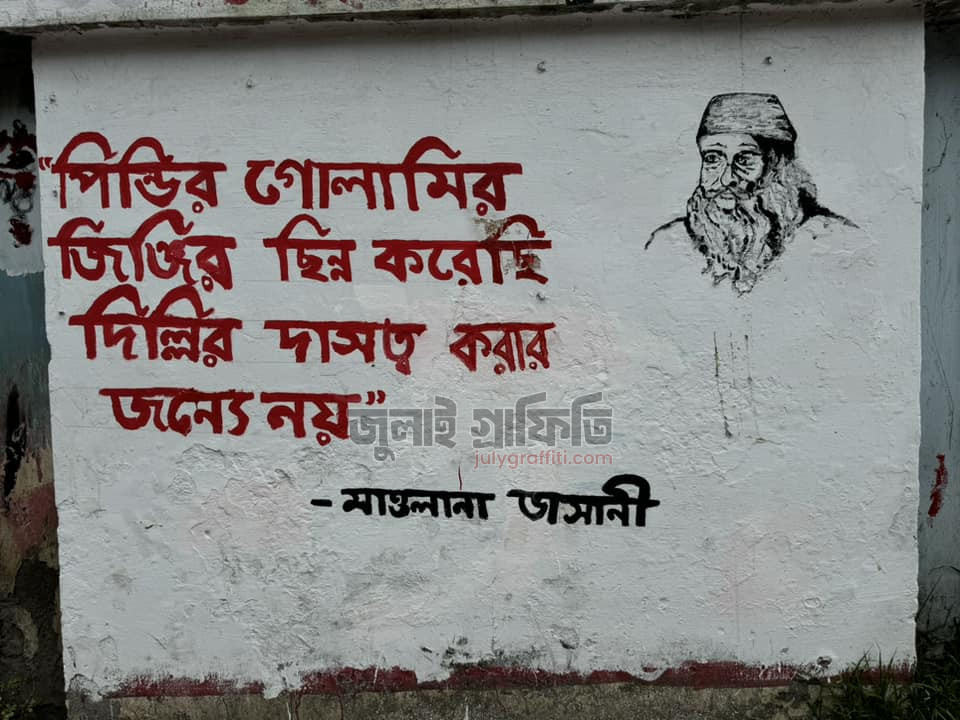 “পিন্ডির গোলামির
জিঞ্জির ছিন্ন করেছি
দিল্লির দাসত্ব করার
জন্যে নয়”
জুলাই গ্রাফিতি
julygraffiti.com
- মাওলানা ভাসানী